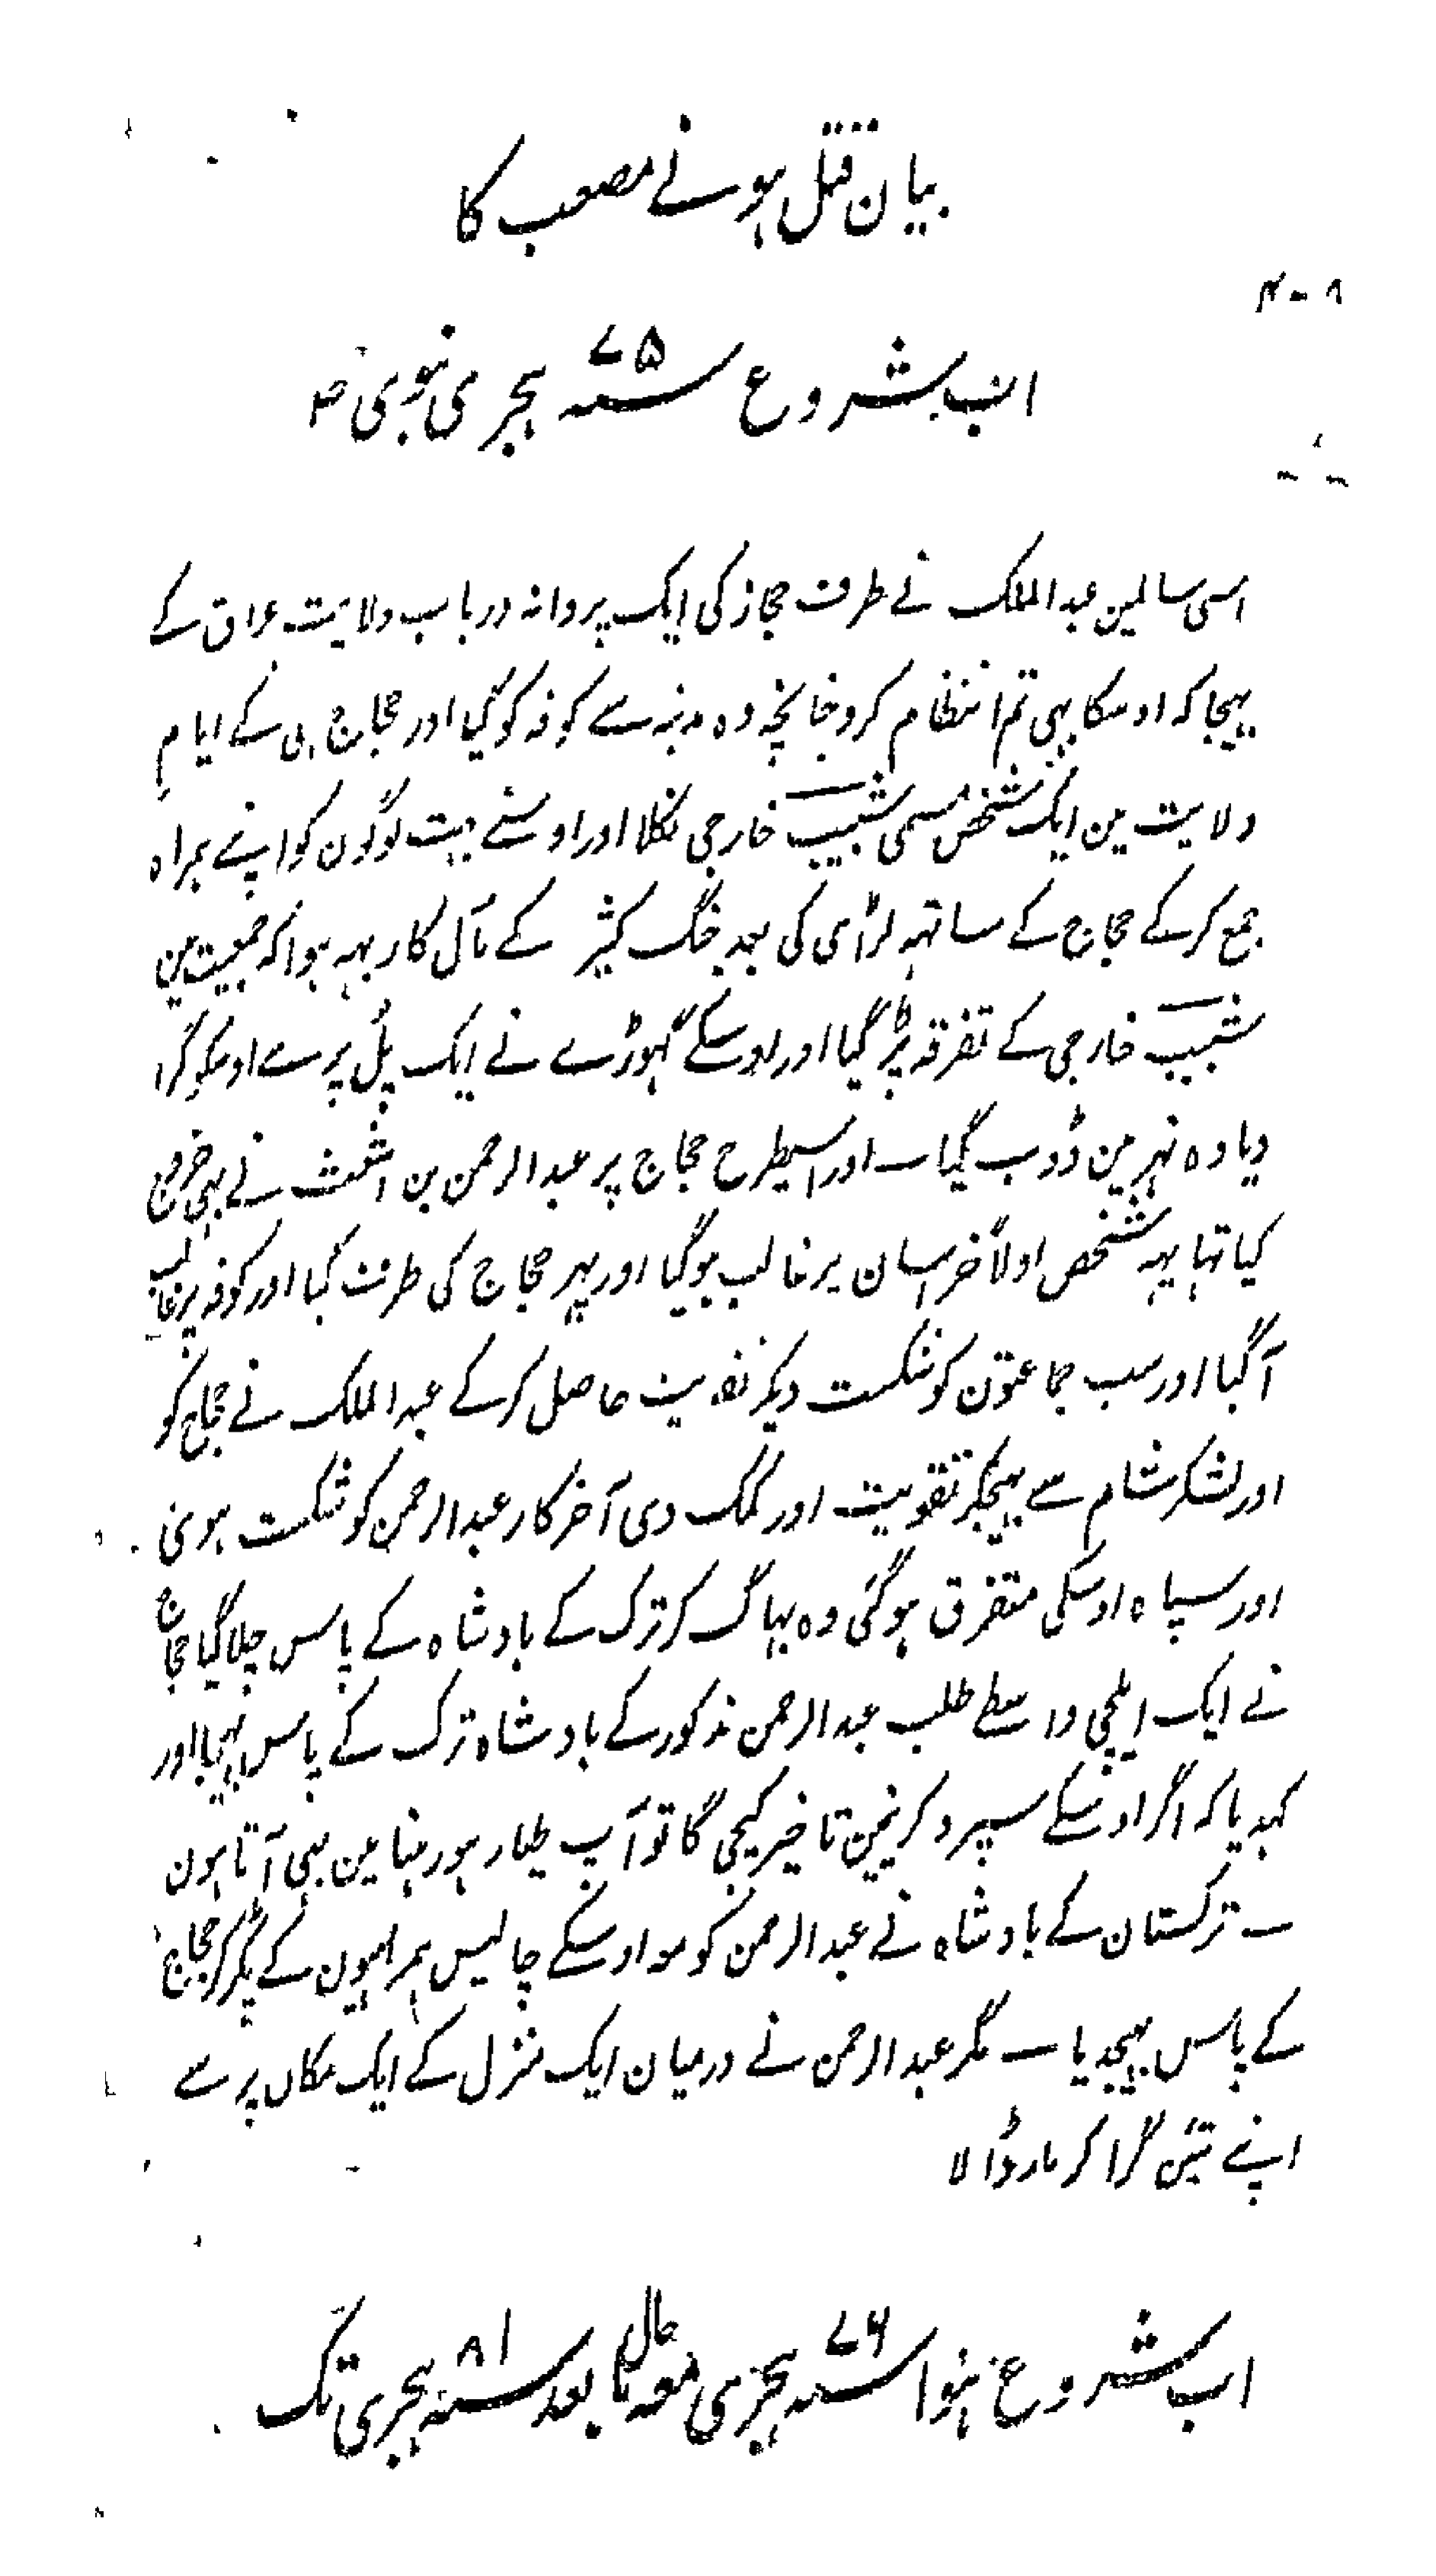 بیان قتل ہونے مصعب کا
اب شروع سنہ ۷۵ ہجری نبوی ص
اسی سالمین عبد الملک نے طرف حجاز کی ایک پروانہ درباب ولایت عراق کے
بہیجا کہ اوسکا بہی تم انتظام کرو چنانچہ وہ مدینہ سے کوفہ کو گیا اور حجاج ہی کے ایام
ولایت مین ایک شخص مسمی شبیب خارجی نکلا اور اوسنے بہت لوگون کو اپنے ہمراہ
جمع کر کے حجاج کے ساتہہ لڑای کی بعد جنگ کثیر کے مآل کار یہہ ہوا کہ جمعیت مین
شبیب خارجی کے تفرقہ پڑ گیا اور اوسکے گہوڑے نے ایک پل پر سے اوسکو گرا
دیا وہ نہر مین ڈوب گیا ــ اور اسیطرح حجاج پر عبد الرحمن بن اشعث نے بہی خروج
کیا تہا یہہ شخص اولاً خراسان پر غالب ہو گیا اور پہر حجاج کی طرف گیا اور کوفہ پر غالب
آ گیا اور سب جماعتون کو شکست دیکر حاصل کر کے عبد الملک نے حجاج کو
اور لشکر شام سے بہیجکر تقویت اور کمک دی آخر کار عبد الرحمن کو شکست ہوئی
اور سپاہ اوسکی متفرق ہو گئی وہ بہاگ کر ترک کے بادشاہ کے پاس چلا گیا حجاج
نے ایک ایلچی واسطے طلب عبد الرحمن مذکور کے بادشاہ ترک کے پاس بہیجا اور
کہدیا کہ اگر اوسکے سپرد کرنیمین تاخیر کیجی گا تو آپ طیار ہو رہنا مین بہی آتا ہون
ــ ترکستان کے بادشاہ نے عبد الرحمن کو معہ اوسکے چالیس ہمراہیون کے پکڑ کر حجاج
کے پاس بہیجدیا ــ مگر عبد الرحمن نے درمیان ایک منزل کے ایک مکان پر سے
اپنے تئین گرا کر مار ڈالا
اب شروع ہوا سنہ ۷۶ ہجری معہ حال مابعد سنہ ۸۱ ہجری تک